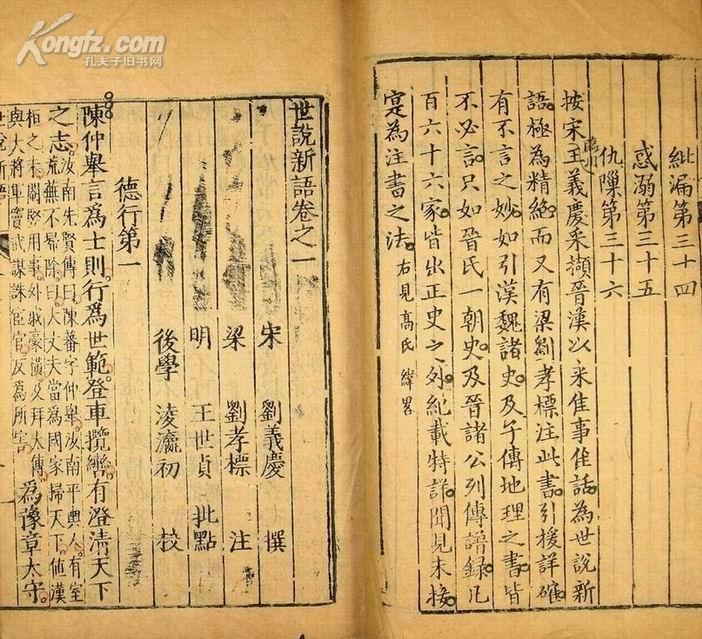 Kongfz.com
孔夫子旧书网
紕漏第三十四
惑溺第三十五
仇隟第三十六
按宋臨川王義慶采擷晉漢以來佳事佳話為世說新
語極為精絕而又有梁劉孝標注此書引援詳確
有不言之妙如引漢魏諸史及子傳地理之書皆
不必言只如晉氏一朝史及晉諸公列傳譜録凡
百六十六家皆出正史之外紀載特詳聞見未接
寔為注書之法右見高氏緯畧
世說新語卷之一
宋 劉義慶 撰
梁 劉孝標 注
明 王世貞 批點
後學 凌瀛初 校
德行第一
陳仲舉言為士則行為世範登車攬轡有澄清天下
之志汝南先賢傳曰陳蕃字仲舉汝南平輿人有室
荒蕪不掃除曰大丈夫當為國家掃天下值漢
桓之末閹竪用事外戚豪橫及拜太傅
與大將軍竇武謀誅宦官反為所害為豫章太守
世說新語